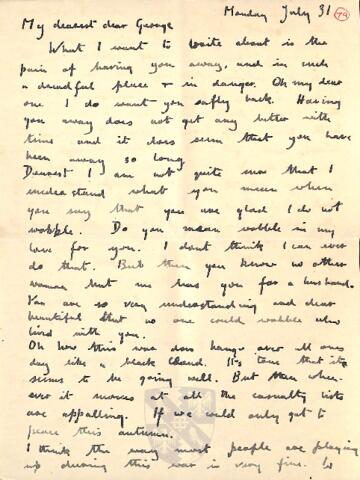 Monday July 31 79
My dearest dear George
What I want to write about is the
pain of having you away, and in such
a dreadful place & in danger. Oh my dear
one I do want you safely back. Having
you away does not get any better with
time and it does seem that you have
been away so long.
Dearest I am not quite sure that I
understand what you mean when
you say that you are glad I do not
wobble. Do you mean wobble in my
love for you. I dont think I can ever
do that. But then you know no other
woman but me has you for a husband.
You are so very understanding and dear
beautiful that no one could wobble who
lived with you.
Oh how this war does hang over all ones
day like a black cloud. It's true that it
seems to be going well. But then when-
ever it moves at all the casualty lists
are appalling. If we could only get to
peace this autumn.
I think the way most people are playing
up during this war is very fine.